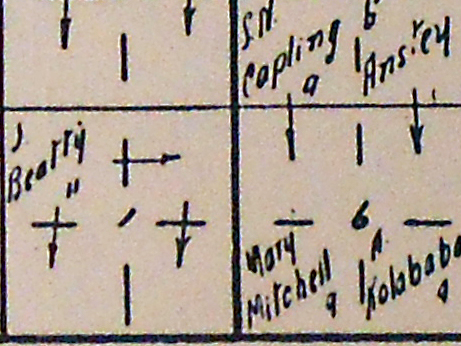 S.N.
Copling
9
6
Ansley
J.
Beatty
"
6
Mary
Mitchell
9
A.
Kolababa
9